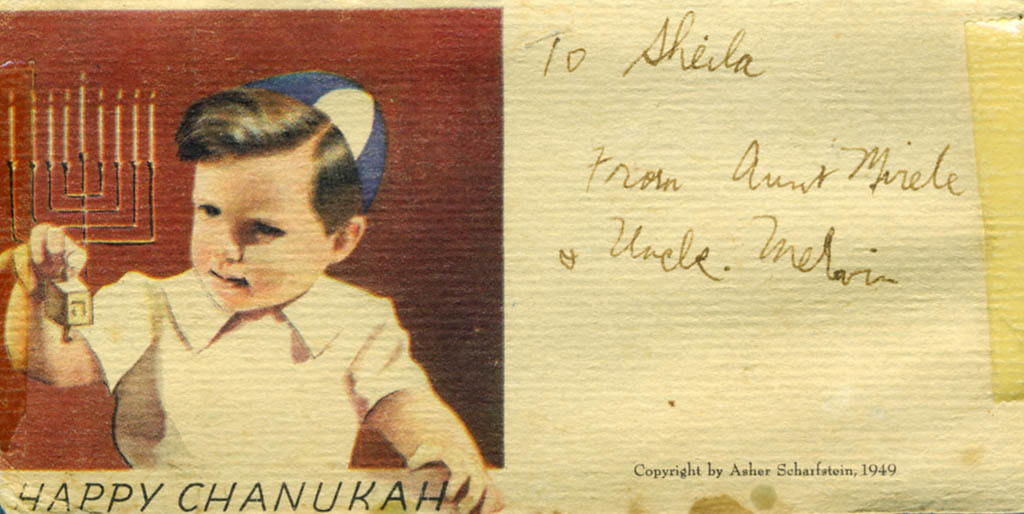 HAPPY CHANUKAH
To Sheila
From Aunt Mirele
& Uncle. Melvin
Copyright by Asher Scharfstein, 1949